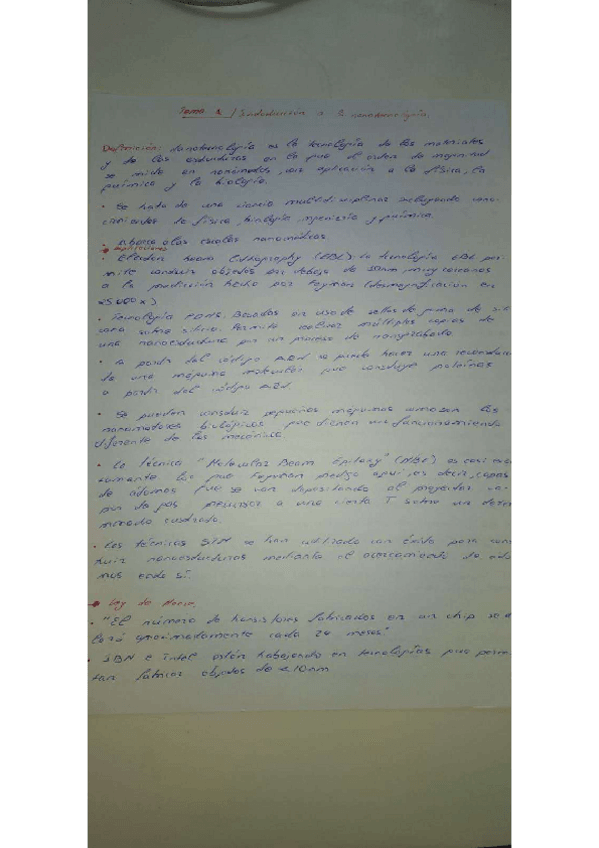 Tema 1 / Introducción a la nanotecnología.
Definición: Nanotecnología es la tecnología de los materiales
y de las estructuras en la que el orden de magnitud
se mide en nanómetros, con aplicación a la física, la
química y la biología.
• Se trata de una ciencia multidisciplinar incluyendo cono-
cimientos de física, biología, ingeniería y química.
• Abarca a las escalas nanométricas
Aplicaciones
• Electron beam Lithography (EBL): la tecnología EBL per-
mite construir objetos por debajo de 50nm muy cercanos
a la predicción hecha por Feyman (desmagnificación en
25000x)
• Tecnología PDMS. Basados en uso de sellos de goma de sili-
cona sobre silicio. Permite realizar múltiples copias de
una nanoestructura por un proceso de nanograbado.
• A partir del código ADN se puede hacer una
de una máquina molecular que construye proteínas
a partir del código ADN
• Se pueden construir pequeñas máquinas como son los
nanomotores biológicos que tienen un funcionamiento
diferente de los mecánica
• La técnica "Molecular Beam Epitaxy" (MBE) es casi exa-
tamente lo que Feynman predijo aquí, es decir, capas
de átomos que se van depositando al proyectar
de gas a una cierta T sobre un deter-
minado
• Las técnicas STM se han utilizado con éxito para cons-
truir nanoestructuras mediante el acercamiento de áto-
mos entre sí.
• Ley de Moore.
• "El número de transistores fabricados en un chip se
aproximadamente cada 24 meses"
• IBM e Intel están trabajando en tecnologías que permi-
tan fabricar objetos de <10nm